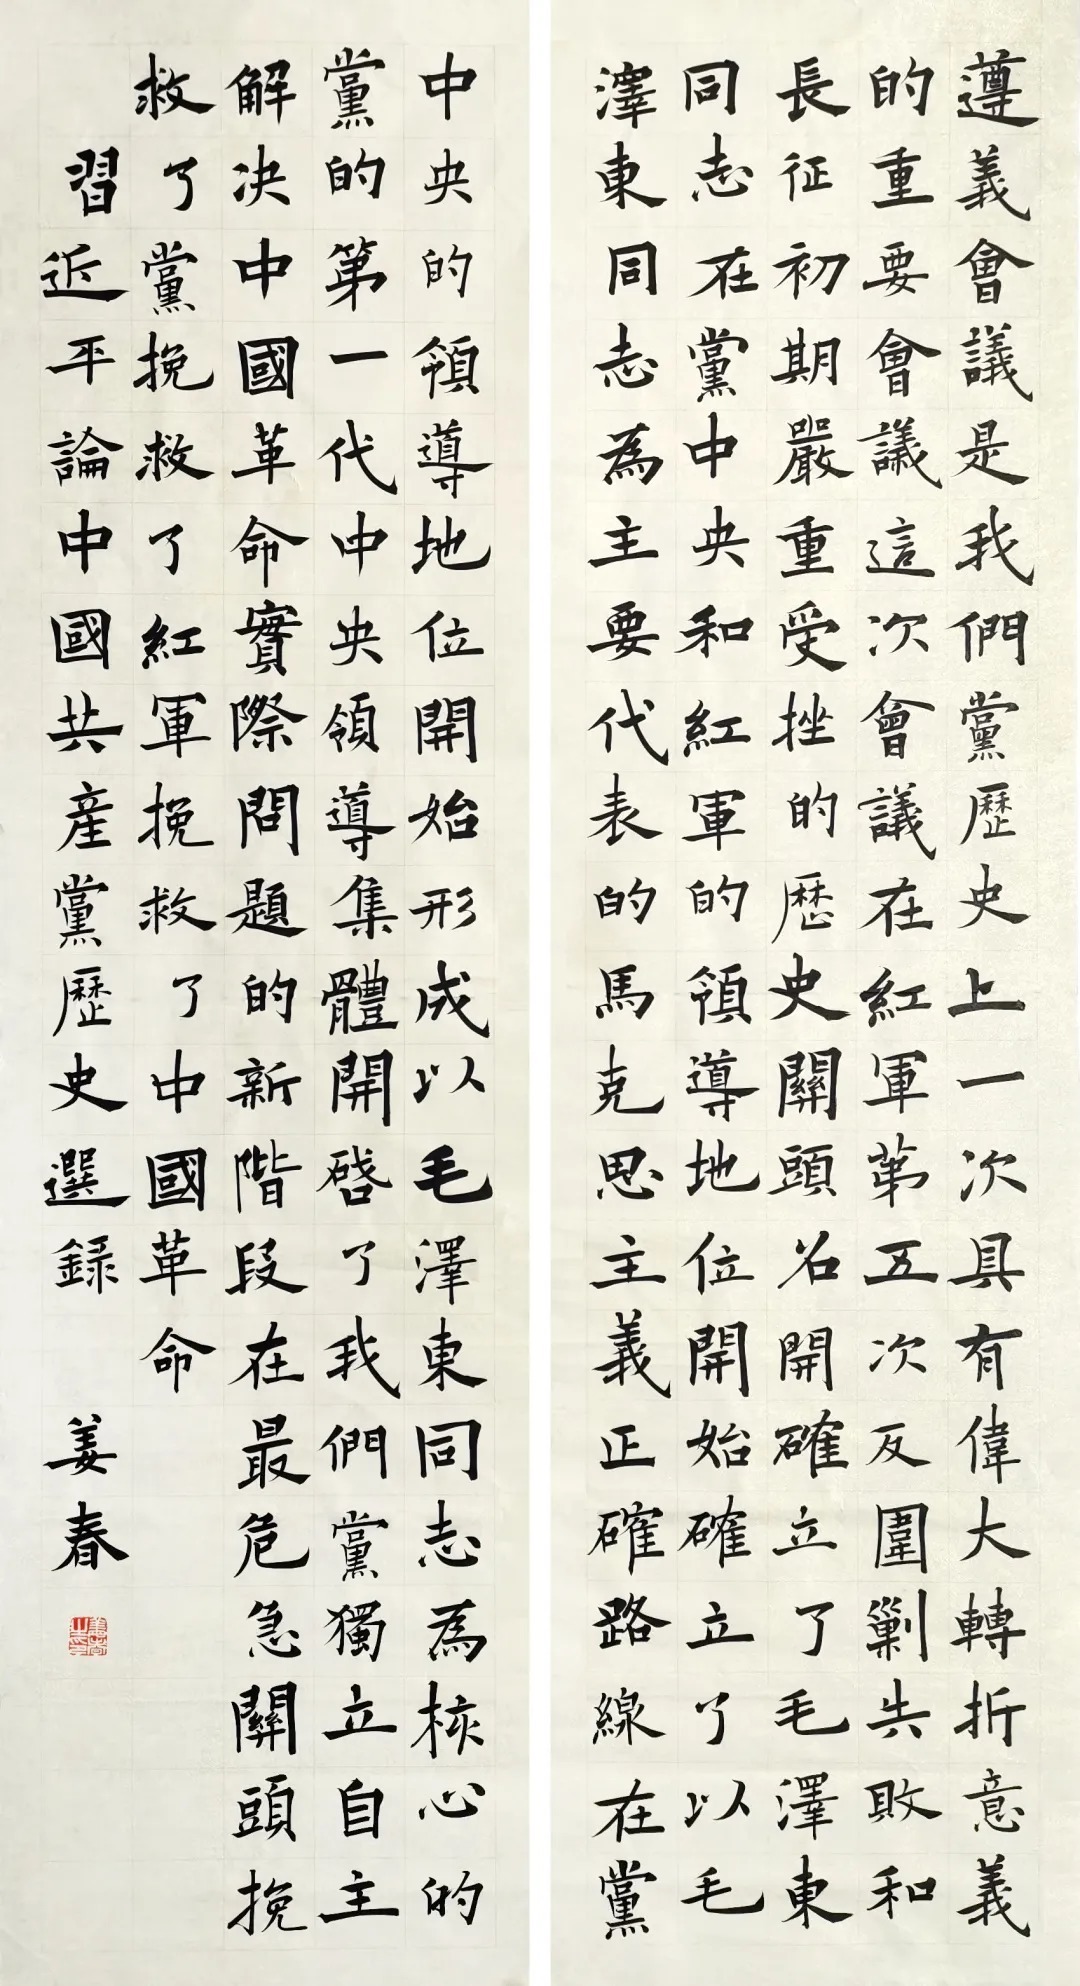 遵義會議是我們黨歷史上一次具有偉大轉折意義
的重要會議這次會議在紅軍第五次反圍剿失敗和
長征初期嚴重受挫的歷史關頭召開確立了毛澤東
同志在黨中央和紅軍的領導地位開始確立了以毛
澤東同志為主要代表的馬克思主義正確路線在黨
中央的領導地位開始形成以毛澤東同志為核心的
黨的第一代中央領導集體開啓了我們黨獨立自主
解决中國革命實際問題的新階段在最危急關頭挽
救了黨挽救了紅軍挽救了中國革命
習近平論中國共産黨歷史選録 姜春